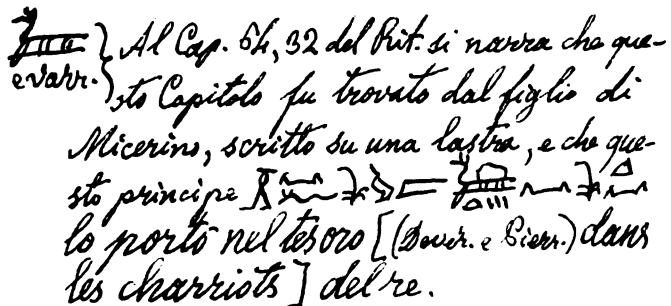 e varr. } Al Cap. 64, 32 del Rit. si narra che que-
sto Capitolo fu trovato dal figlio di
Micerino, scritto su una lastra, e che que-
sto principe
lo portò nel tesoro [(Dever. e Pierr.) dans
les charriots] del re.